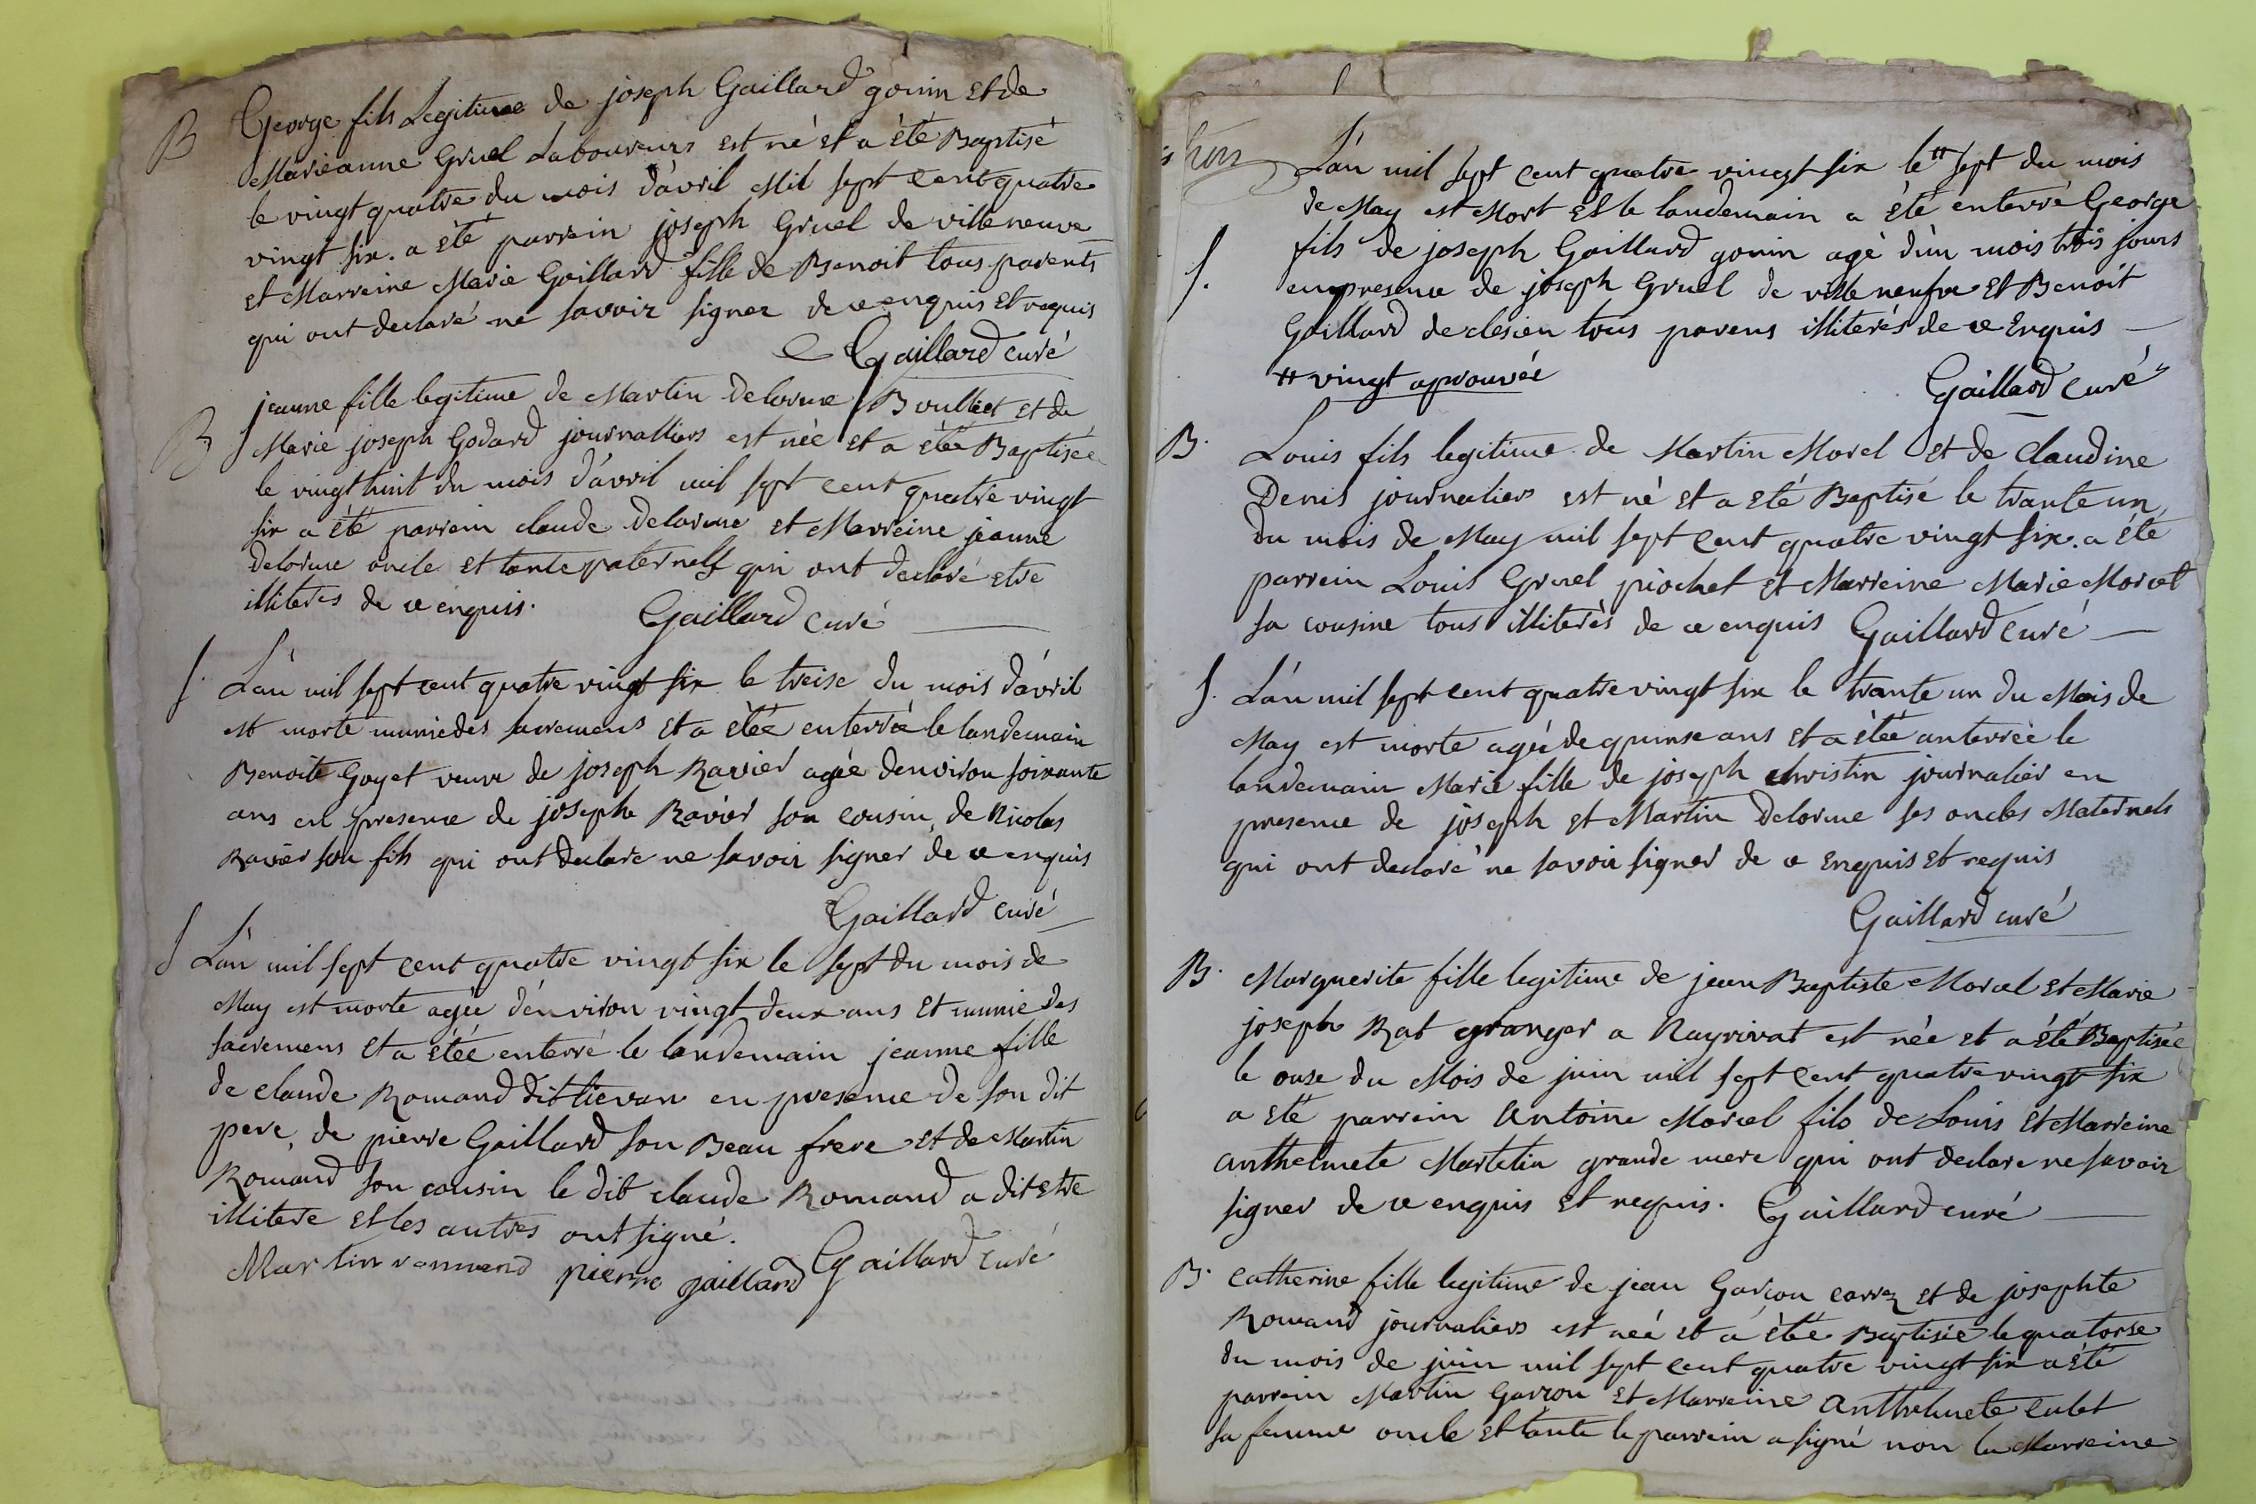 B George fils Legitime de joseph Gaillard gonin et de
Marieanne Gruel Laboureurs est né et a été Baptisé
le vingt quatre du mois d'avril Mil sept cent quatre
vingt six. a été parrein joseph Gruel de villeneuve
et Marreine Marie Gaillard fille de Benoit tous parents
qui ont declaré ne savoir signer de ce enquis et requis
Gaillard curé
B jeanne fille legitime de Martin Delorme Boulliet et de
Marie joseph Godard journalliers est née et a été Baptisée
le vingt huit du mois d'avril mil sept cent quatre vingt
six a été parrein claude Delorme et Marreine jeanne
Delorme oncle et tante paternels qui ont declaré etre
illiteres de ce enquis. Gaillard curé
s. L'an mil sept cent quatre vingt six le treise du mois d'avril
est morte munie des sacremens et a étée enterrée le landemain
Benoite Goyet veuve de joseph Ravier agée d'environ soixante
ans en presence de josephe Ravier son cousin, de Nicolas
Ravier son fils qui ont declare ne savoir signer de ce enquis
Gaillard curé
s L'an mil sept cent quatre vingt six le sept du mois de
May est morte agée d'environ vingt deux ans et munie des
sacremens et a étée enterré le landemain jeanne fille
de claude Romand dit lievan en presence de son dit
pere, de pierre Gaillard son Beau frere et de Martin
Romand son cousin le dit claude Romand a dit etre
illitere et les autres ont signé.
Martin rommand pierre gaillard Gaillard curé
L'an mil sept cent quatre vingt six le # sept du mois
de May est Mort et le landemain a été enterré George
s. fils de joseph Gaillard gonin agé d'un mois trois jours
en presence de joseph Gruel de ville neufve et Benoit
Gaillard de clesieu tous parens illiterés de ce enquis
# vingt aprouvée
Gaillard curé
B. Louis fils legitime de Martin Morel et de Claudine
Denis journaliers est né et a été Baptisé le trante un
du mois de May mil sept cent quatre vingt six. a été
parrein Louis Gruel piochet et Marreine Marie Morel
sa cousine tous illiterés de ce enquis Gaillard curé
s. L'an mil sept cent quatre vingt six le trante un du Mois de
May est morte agée de quinse ans et a étée anterrée le
landemain Marie fille de joseph christin journalier en
presence de joseph et Martin Delorme ses oncles Maternels
qui ont declaré ne savoir signer de ce enquis et requis
Gaillard curé
B. Marguerite fille legitime de jean Baptiste Morel et Marie
joseph Rat granger a Rayrivat est née et a été Baptisée
le onse du Mois de juin mil sept cent quatre vingt six
a été parrein Antoine Morel fils de Louis et Marreine
anthelmete Martetin grande mere qui ont declare ne savoir
signer de ce enquis et requis. Gaillard curé
B. Catherine fille legitime de jean Garçon carrez et de josephte
Romand journaliers est née et a étée Baptisée le quatorse
du mois de juin mil sept cent quatre vingt six a été
parrein Martin Garçon et Marreine Anthelmete culet
sa femme oncle et tante le parrein a signé non la Marreine